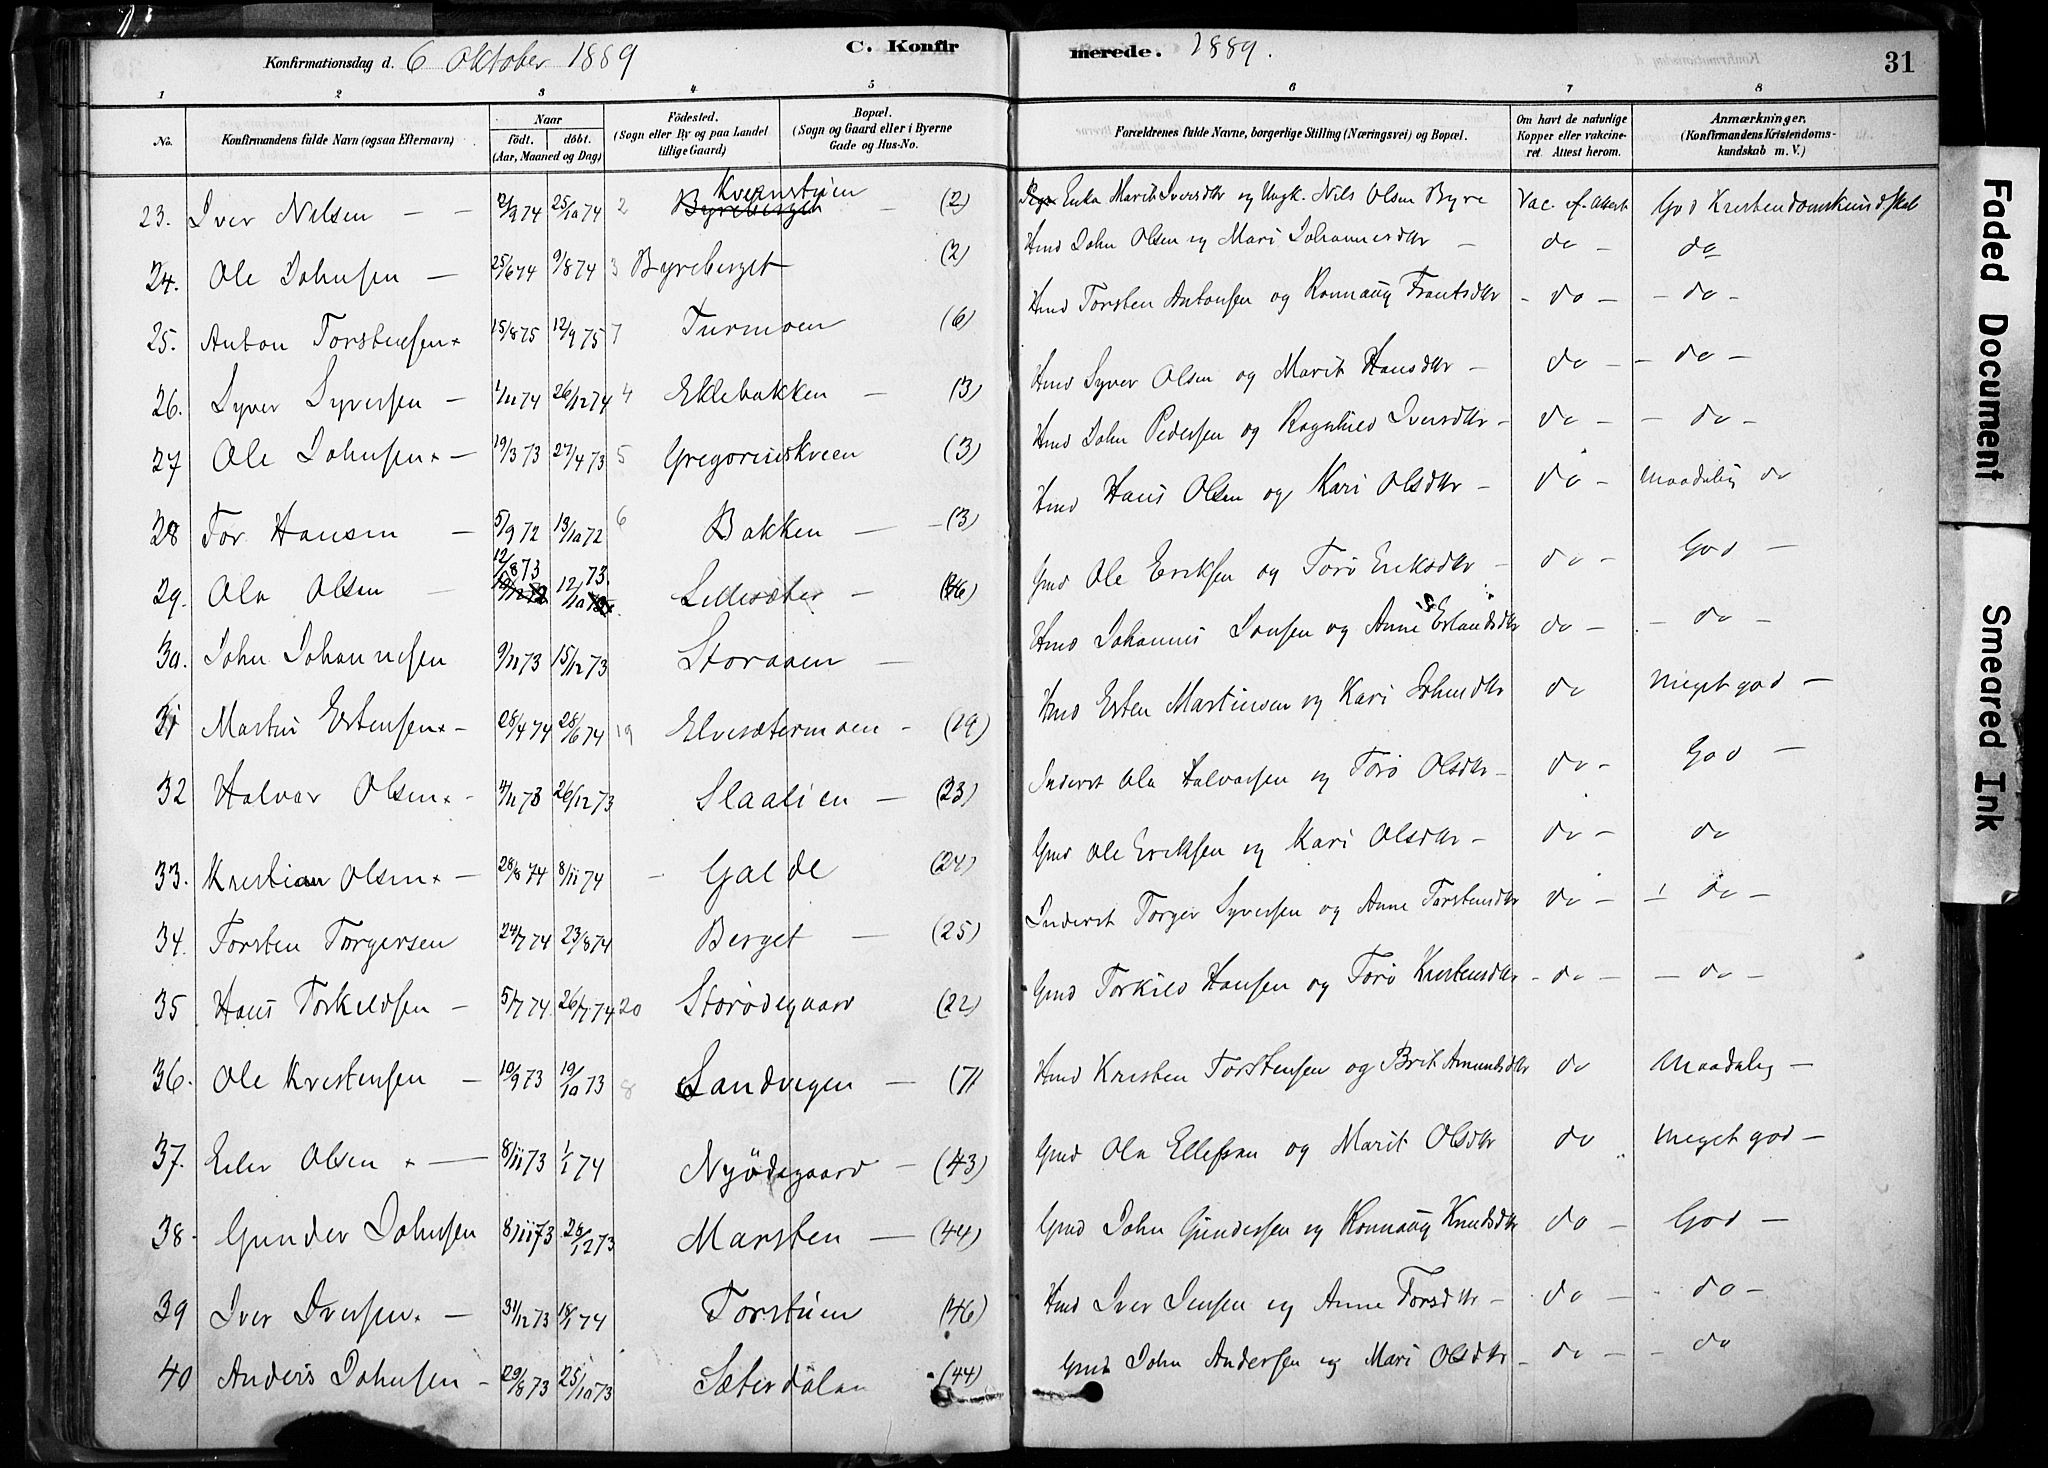 Konfirmationsdag d. 6 Oktober 1889 C. Konfirmerede. 1889. 31
1 2 3 4 5 6 7 8
No. Konfirmandens fulde Navn (ogsaa Efternavn) Naar Født. døbt. (Aar, Maaned og Dag) Fødested. (Sogn eller By og paa Landet tillige Gaard) Bopæl. (Sogn og Gaard eller i Byerne Gade og Hus-No. Forældrenes fulde Navne, borgerlige Stilling (Næringsvei) og Bopæl. Om havt de naturlige Kopper eller vakcineret. Attest herom. Anmærkninger. (Konfirmandens Kristendomskundskab m. V.)
23. Iver Nilsen – – 74 25/10 74 2 Byreberget Kvernstuen – (2) Enka Marit Iversdtr og Ungk. Nils Olsen Byre Vac. if. Attest God Kristendomskundskab
24. Ole Johnsen – 25/6 74 9/8 74 3 Byreberget (2) Hmd John Olsen og Mari Johannesdtr – do – do
25. Anton Torstensen × 15/8 75 12/9 75 7 Turmoen (6) Hmd Torsten Antonsen og Ronnaug Frantsdtr – do – – do –
26. Syver Syversen – 1/11 74 26/12 74 4 Eklebakken – (3) Hmd Syver Olsen og Marit Hansdtr – do – – do –
27 Ole Johnsen × – 19/3 73 27/4 73 5 Gregoriuskveen (3) Hmd John Pedersen og Ragnhild Iversdtr – do – – do –
28 Tor Hansen – 5/9 72 13/10 72 6 Bakken – – (3) Hmd Hans Olsen og Kari Olsdtr – do – maadelig do
29. Ola Olsen – 12/8 73 12/10 73. Lillesæter – (46) Gmd Ole Eriksen og Torø Eriksdtr – do – God –
30. John Johannesen 9/11 73 15/12 73 Storaaen – Hmd Johannes Jonsen og Anne Erlandsdtr do – – do –
31 Martin Estensen × – 28/4 74 28/6 74 19 Elvesætermoen – (19) Hmd Esten Martinsen og Kari Johnsdtr do meget god –
32 Halvor Olsen × – 4/11 73 26/12 73 Slaalien – (23) Inderst Ola Halvorsen og Torø Olsdtr – do – God –
33. Kristian Olsen × – 28/8 74 8/11 74 – Galde (24) Gmd Ole Eriksen og Kari Olsdtr – do – do
34. Torsten Torgersen 24/7 74 23/8 74 Berget – (25) Inderst Torger Syversen og Anne Torstensdtr do – – do –
35 Hans Torkildsen – 5/7 74 26/7 74 20 Storødegaard (22) Gmd Torkild Hansen og Torø Kristensdtr – do – – do –
36. Ole Kristensen – 10/9 73 19/10 73 8 Sandvigen – (7) Hmd Kristen Torstensen og Brit Amundsdtr do maadelig –
37. Eiler Olsen × – 8/11 73 1/1 74 Nyødegaard – (43) Gmd Ola Ellefsen og Marit Olsdtr do meget god –
38. Gunder Johnsen 8/11 73 28/12 73 Marsten – (44) Gmd John Gundersen og Ronnaug Knudsdtr do – God –
39 Iver Iversen × – 31/12 73 18/1 74 Torstuen (46) Hmd Iver Jensen og Anne Torsdtr – do – – do –
40 Anders Johnsen – 29/8 73 25/10 73 Sæterdalen (44) Gmd John Andersen og Mari Olsdtr – do – – do
Faded Document
Smeared Ink